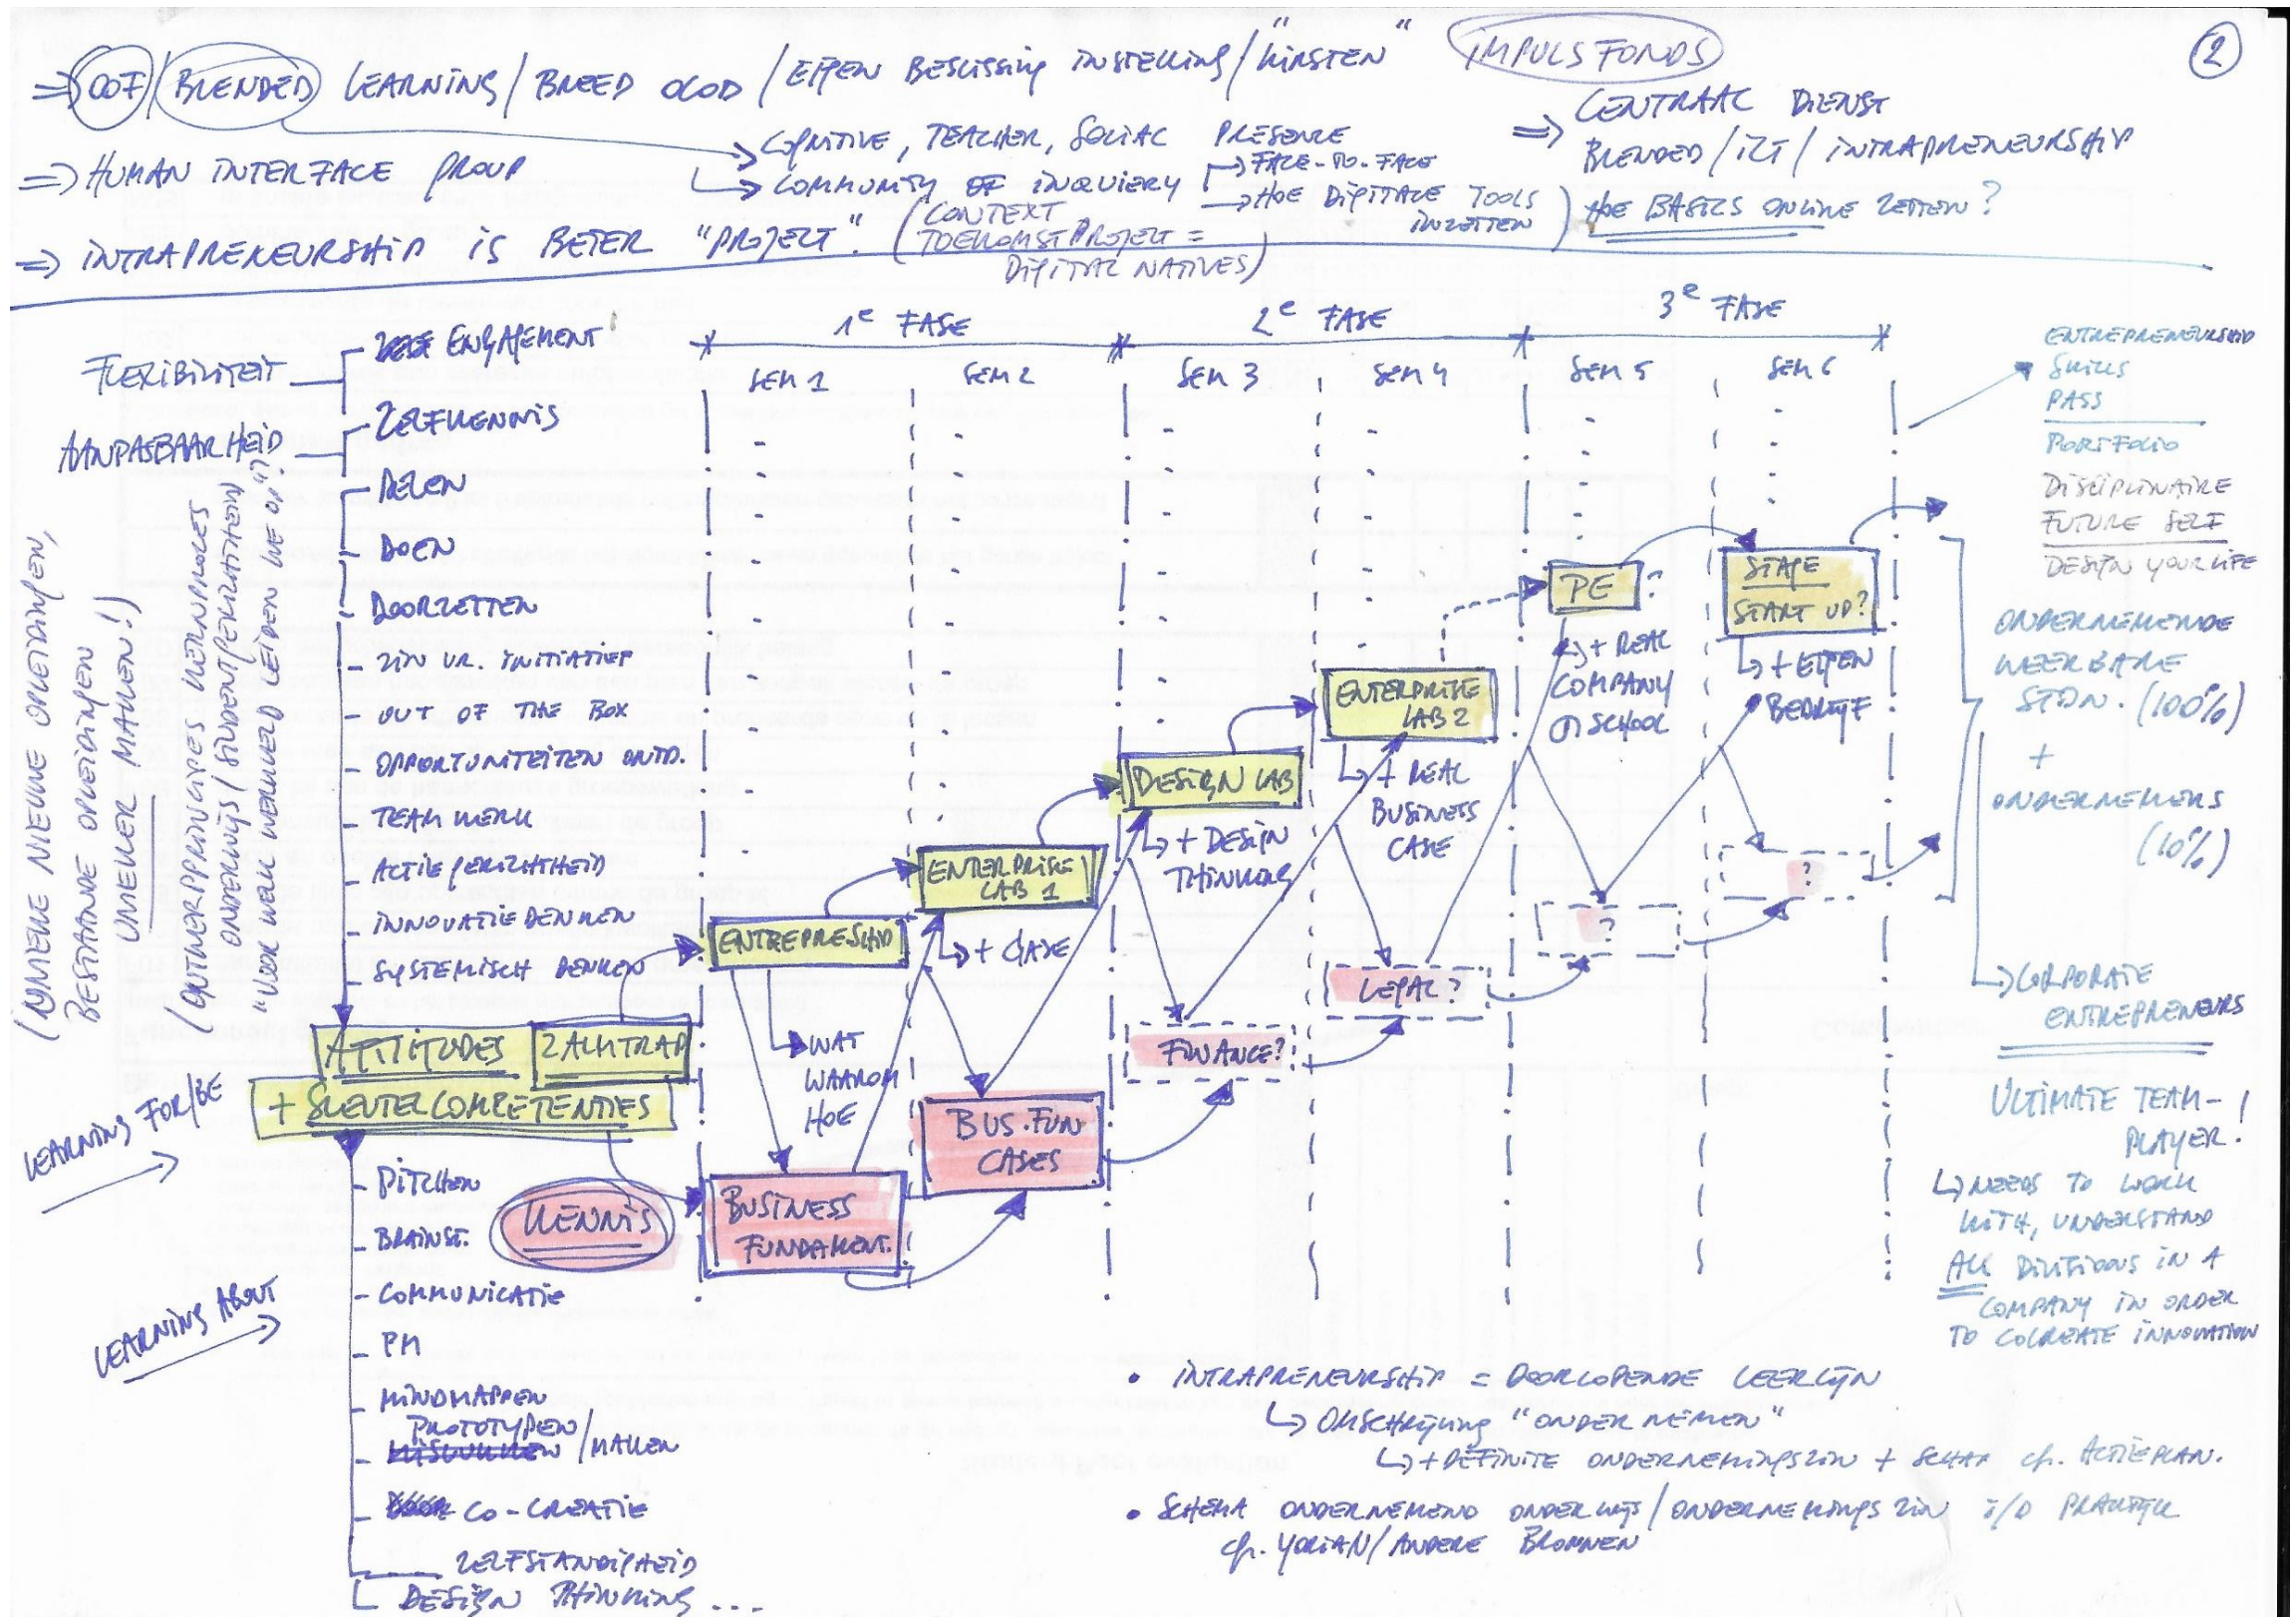 2
⇒ OOF/BLENDED LEARNING/BREED OLOD/EIGEN BESLISSING INSTELLING/"KIRSTEN" IMPULSFONDS
⇒ CENTRAAL DIENST
BLENDED/ICT/INTRAPRENEURSHIP
HOE BASICS ONLINE ZETTEN?
COGNITIVE, TEACHER, SOCIAL PRESENCE
⇒ HUMAN INTERFACE GROUP
COMMUNITY OF INQUIERY
→ FACE-TO-FACE
→ HOE DIGITALE TOOLS
INZETTEN
⇒ INTRAPRENEURSHIP IS BETER "PROJECT".
(CONTEXT
TOEKOMSTPROJECT =
DIGITAL NATIVES)
1e FASE
2e FASE
3e FASE
SEM 1
SEM 2
SEM 3
SEM 4
SEM 5
SEM 6
FLEXIBILITEIT
AANPASBAARHEID
ENGAGEMENT
ZELFKENNIS
DELEN
DOEN
DOORZETTEN
- ZIN VR. INITIATIEF
- OUT OF THE BOX
- OPPORTUNITEITEN ONTD.
- TEAMWERK
- ACTIEGERICHTHEID
- INNOVATIEDENKEN
- SYSTEMISCH DENKEN
(UNIEKE NIEUWE OPLEIDINGEN,
BESTAANDE OPLEIDINGEN
UNIEKER MAKEN!)
(ONTWERPPRINCIPES KERNPROCES
ONDERWIJS/STUDENTGERICHTHEID)
"VOOR WELK WERKVELD LEIDEN WE OP"?
ATTITUDES
2ALENTRAP
+ SLEUTELCOMPETENTIES
LEARNING FOR/BE
LEARNING ABOUT
KENNIS
- PITCHEN
- BRAINST.
- COMMUNICATIE
- PM
- MINDMAPPEN
PROTOTYPEN
/MAKEN
- CO-CREATIE
ZELFSTANDIGHEID
DESIGN THINKING ...
ENTREPRESHIP
WAT
WAAROM
HOE
BUSINESS
FUNDAMENT.
ENTERPRISE
LAB 1
+ CASE
BUS. FUN
CASES
DESIGN LAB
+ DESIGN
THINKING
FINANCE?
ENTERPRISE
LAB 2
+ REAL
BUSINESS
CASE
LEGAL?
PE ?
+ REAL
COMPANY
@ SCHOOL
?
STAGE
START UP?
+ EIGEN
BEDRIJF
?
ENTREPRENEURSHIP
SKILLS
PASS
PORTFOLIO
DISCIPLINAIRE
FUTURE SELF
DESIGN YOUR LIFE
ONDERNEMENDE
WEERBARE
STDN. (100%)
+
ONDERNEMERS
(10%)
CORPORATE
ENTREPRENEURS
ULTIMATE TEAM-
PLAYER!
NEEDS TO WORK
WITH, UNDERSTAND
ALL DIVISIONS IN A
COMPANY IN ORDER
TO COCREATE INNOVATION
• INTRAPRENEURSHIP = DOORLOPENDE LEERLIJN
OMSCHRIJVING "ONDERNEMEN"
+ DEFINITIE ONDERNEMINGSZIN + SCHEMA cfr. ACTIEPLAN.
• SCHEMA ONDERNEMEND ONDERWIJS/ONDERNEMINGSZIN I/D PRAKTIJK
cfr. YORIAN/ANDERE BRONNEN